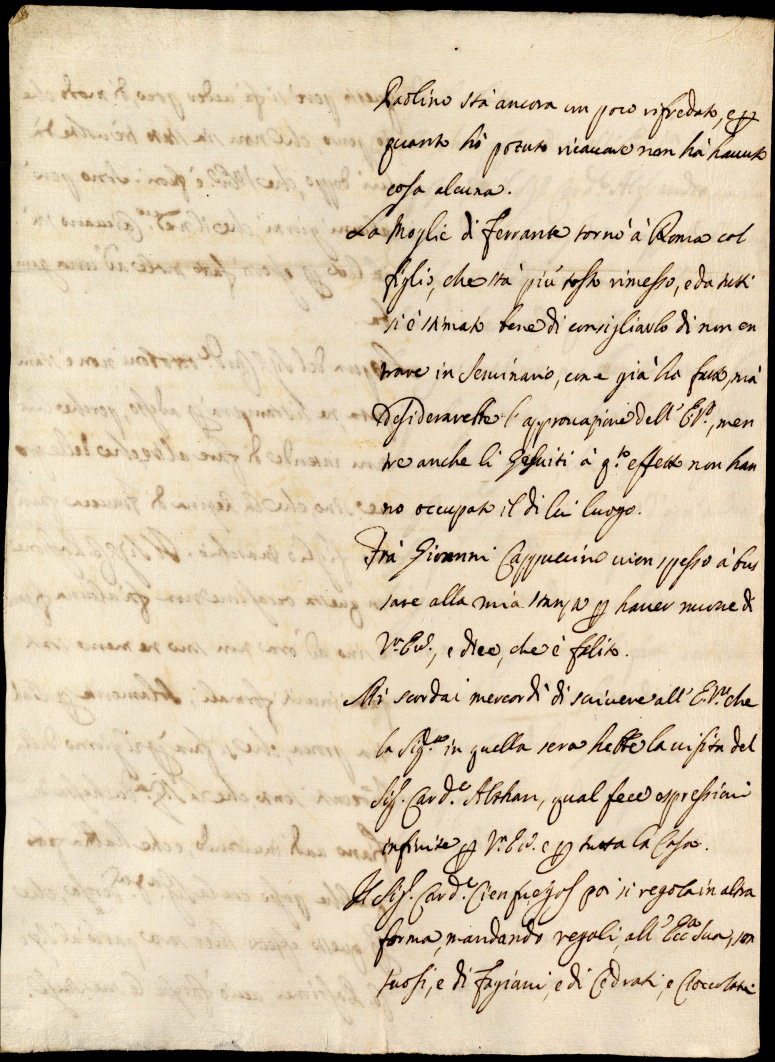 Paolino stà ancora un poco rifredato, e p
quanto hò potuto ricavare non hà havuto
cosa alcuna.
La Moglie di Ferrante tornò à Roma col
figlio, che stà più tosto rimesso, e da tutti
si è stimato bene di consigliarlo di non en
trare in Seminario, come già hà fatto, mà
desiderarebbe l'approvazione dell'E.V., men
tre anche li Gesuiti à q.to effetto non han
no occupato il di lui luogo.
Frà Giovanni Cappuccino vien spesso à bus
sare alla mia stanza p haver nuove di
V.E., e dice, che è felito.
Mi scordai mercordì di scrivere all'E.V. che
la Sig.ra in quella sera hebbe la visita del
Sig. Card.e Althan, qual fece espressioni
infinite p V.E. e p tutta la Casa.
Il Sig. Card.e Cienfuegos poi si regola in altra
forma, mandando regali, all'Ecc.a Sua, son
tuosi, e di fagiani, e di Cedrati, e Cioccolata